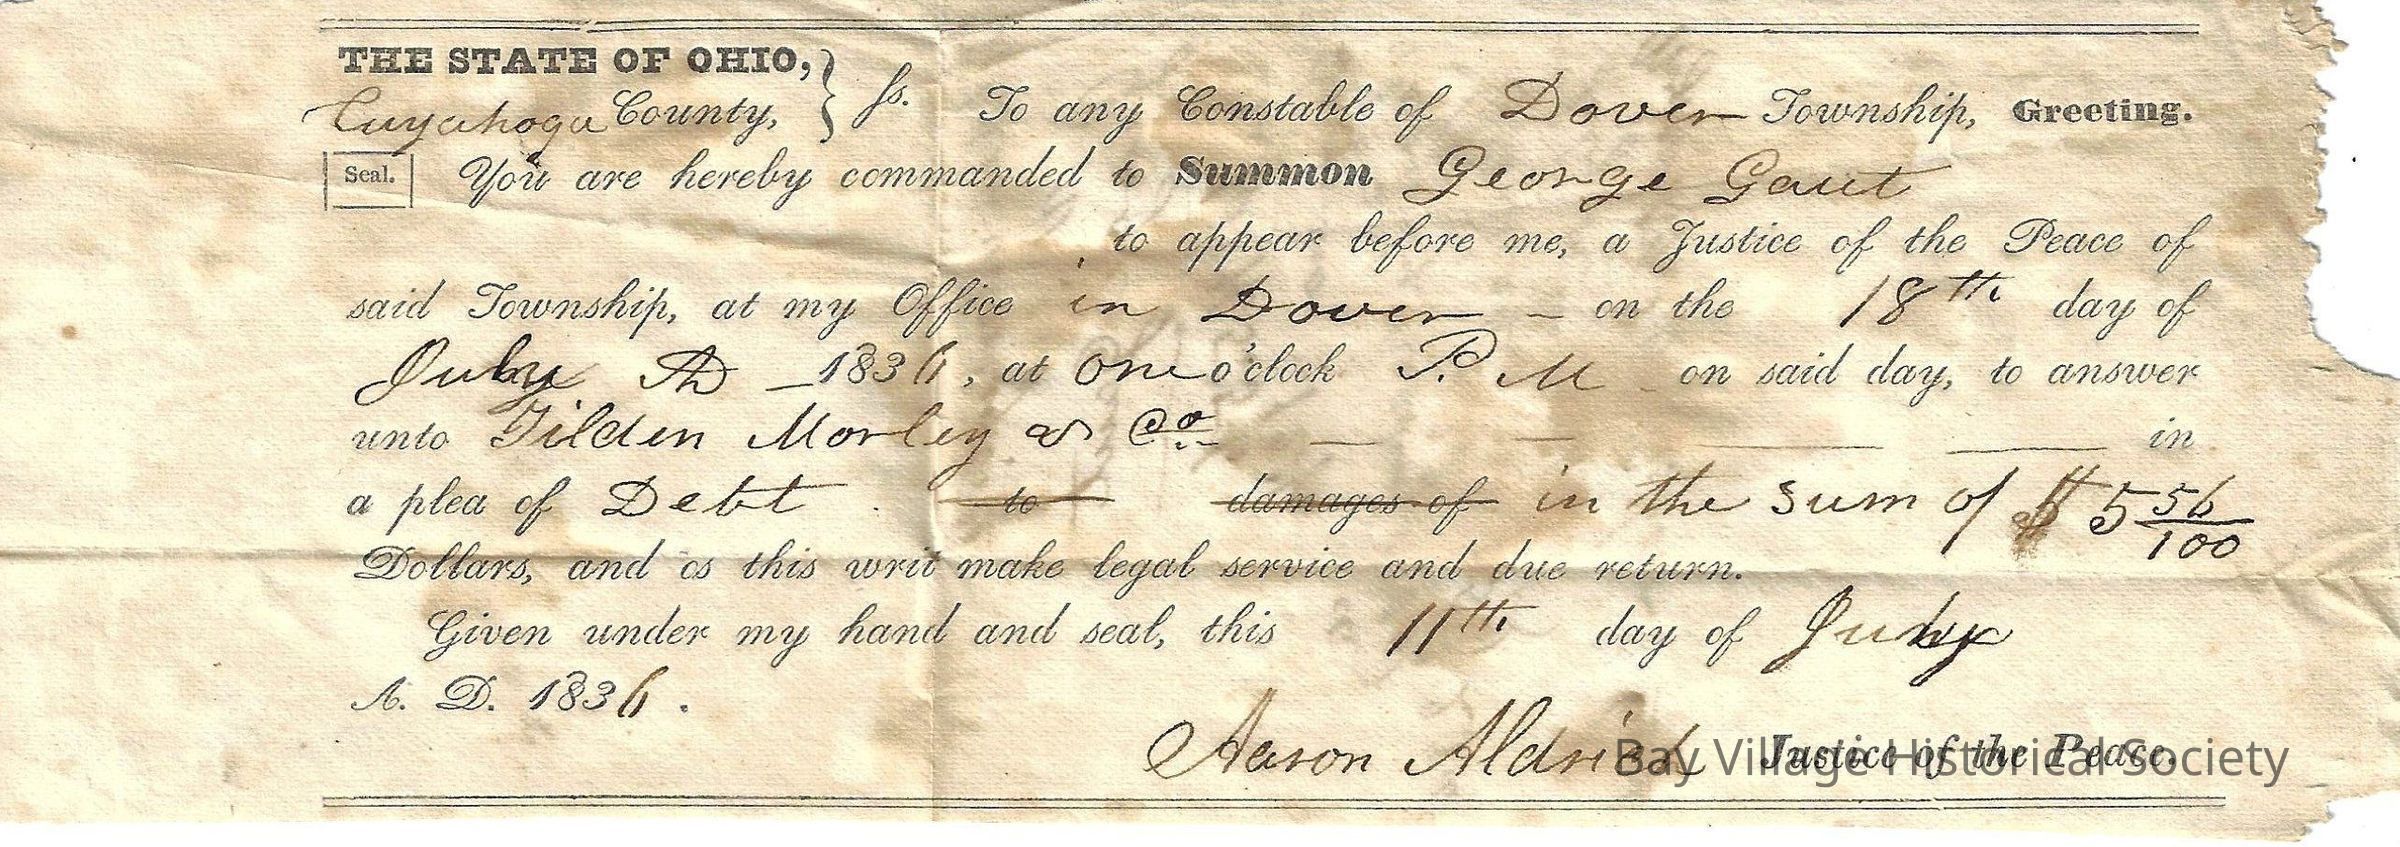 THE STATE OF OHIO,
Cuyahoga County, } ss. To any Constable of Dover Township, Greeting.
Seal. You are hereby commanded to Summon George Gaut
to appear before me, a Justice of the Peace of
said Township, at my Office in Dover – on the 18th day of
July AD – 1836, at One o'clock P. M on said day, to answer
unto Tilden Morley & Co. — — — — in
a plea of Debt . to damages of in the sum of $ 5 56/100
Dollars, and of this writ make legal service and due return.
Given under my hand and seal, this 11th day of July
A. D. 1836.
Aaron Aldrich Justice of the Peace.
Bay Village Historical Society